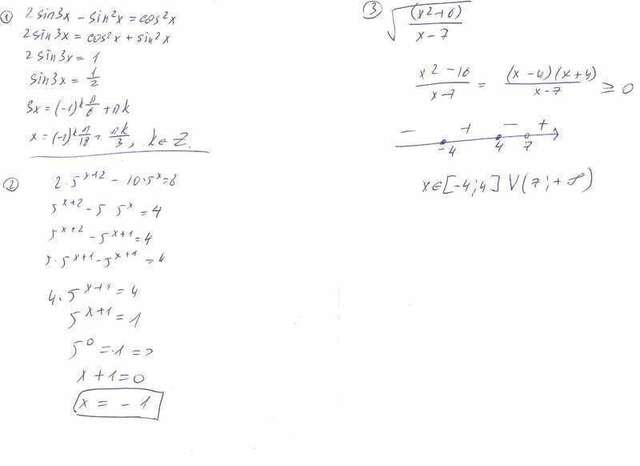 ① 2 sin3x - sin²x = cos²x
2 sin3x = cos²x + sin²x
2 sin3x = 1
sin3x = 1/2
3x = (-1)^k π/6 + πk
x = (-1)^k π/18 + πk/3, k∈Z.
② 2·5^(x+2) - 10·5^x = 8
5^(x+2) - 5 5^x = 4
5^(x+2) - 5^(x+1) = 4
5·5^(x+1) - 5^(x+1) = 4
4·5^(x+1) = 4
5^(x+1) = 1
5^0 = 1 =>
x + 1 = 0
x = - 1
③ √((x2-16)/(x-7))
(x2-16)/(x-7) = (x-4)(x+4)/(x-7) ≥ 0
- + - +
-4 4 7
x∈[-4;4] V (7; +∞)